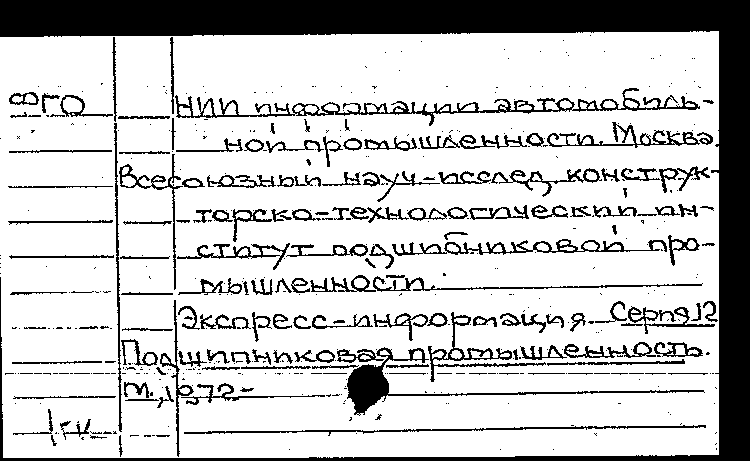 ВГО НИИ информации автомобиль-
ной промышленности. Москва.
Всесоюзный науч.-исслед. конструк-
торско-технологический ин-
ститут подшипниковой про-
мышленности.
Экспресс-информация. Серия 12
Подшипниковая промышленность.
М., 1972-